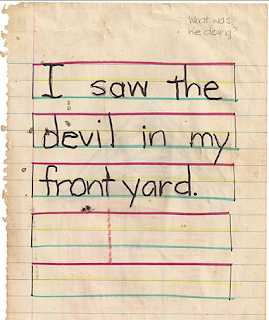 What was
he doing?
I saw the
devil in my
front yard.